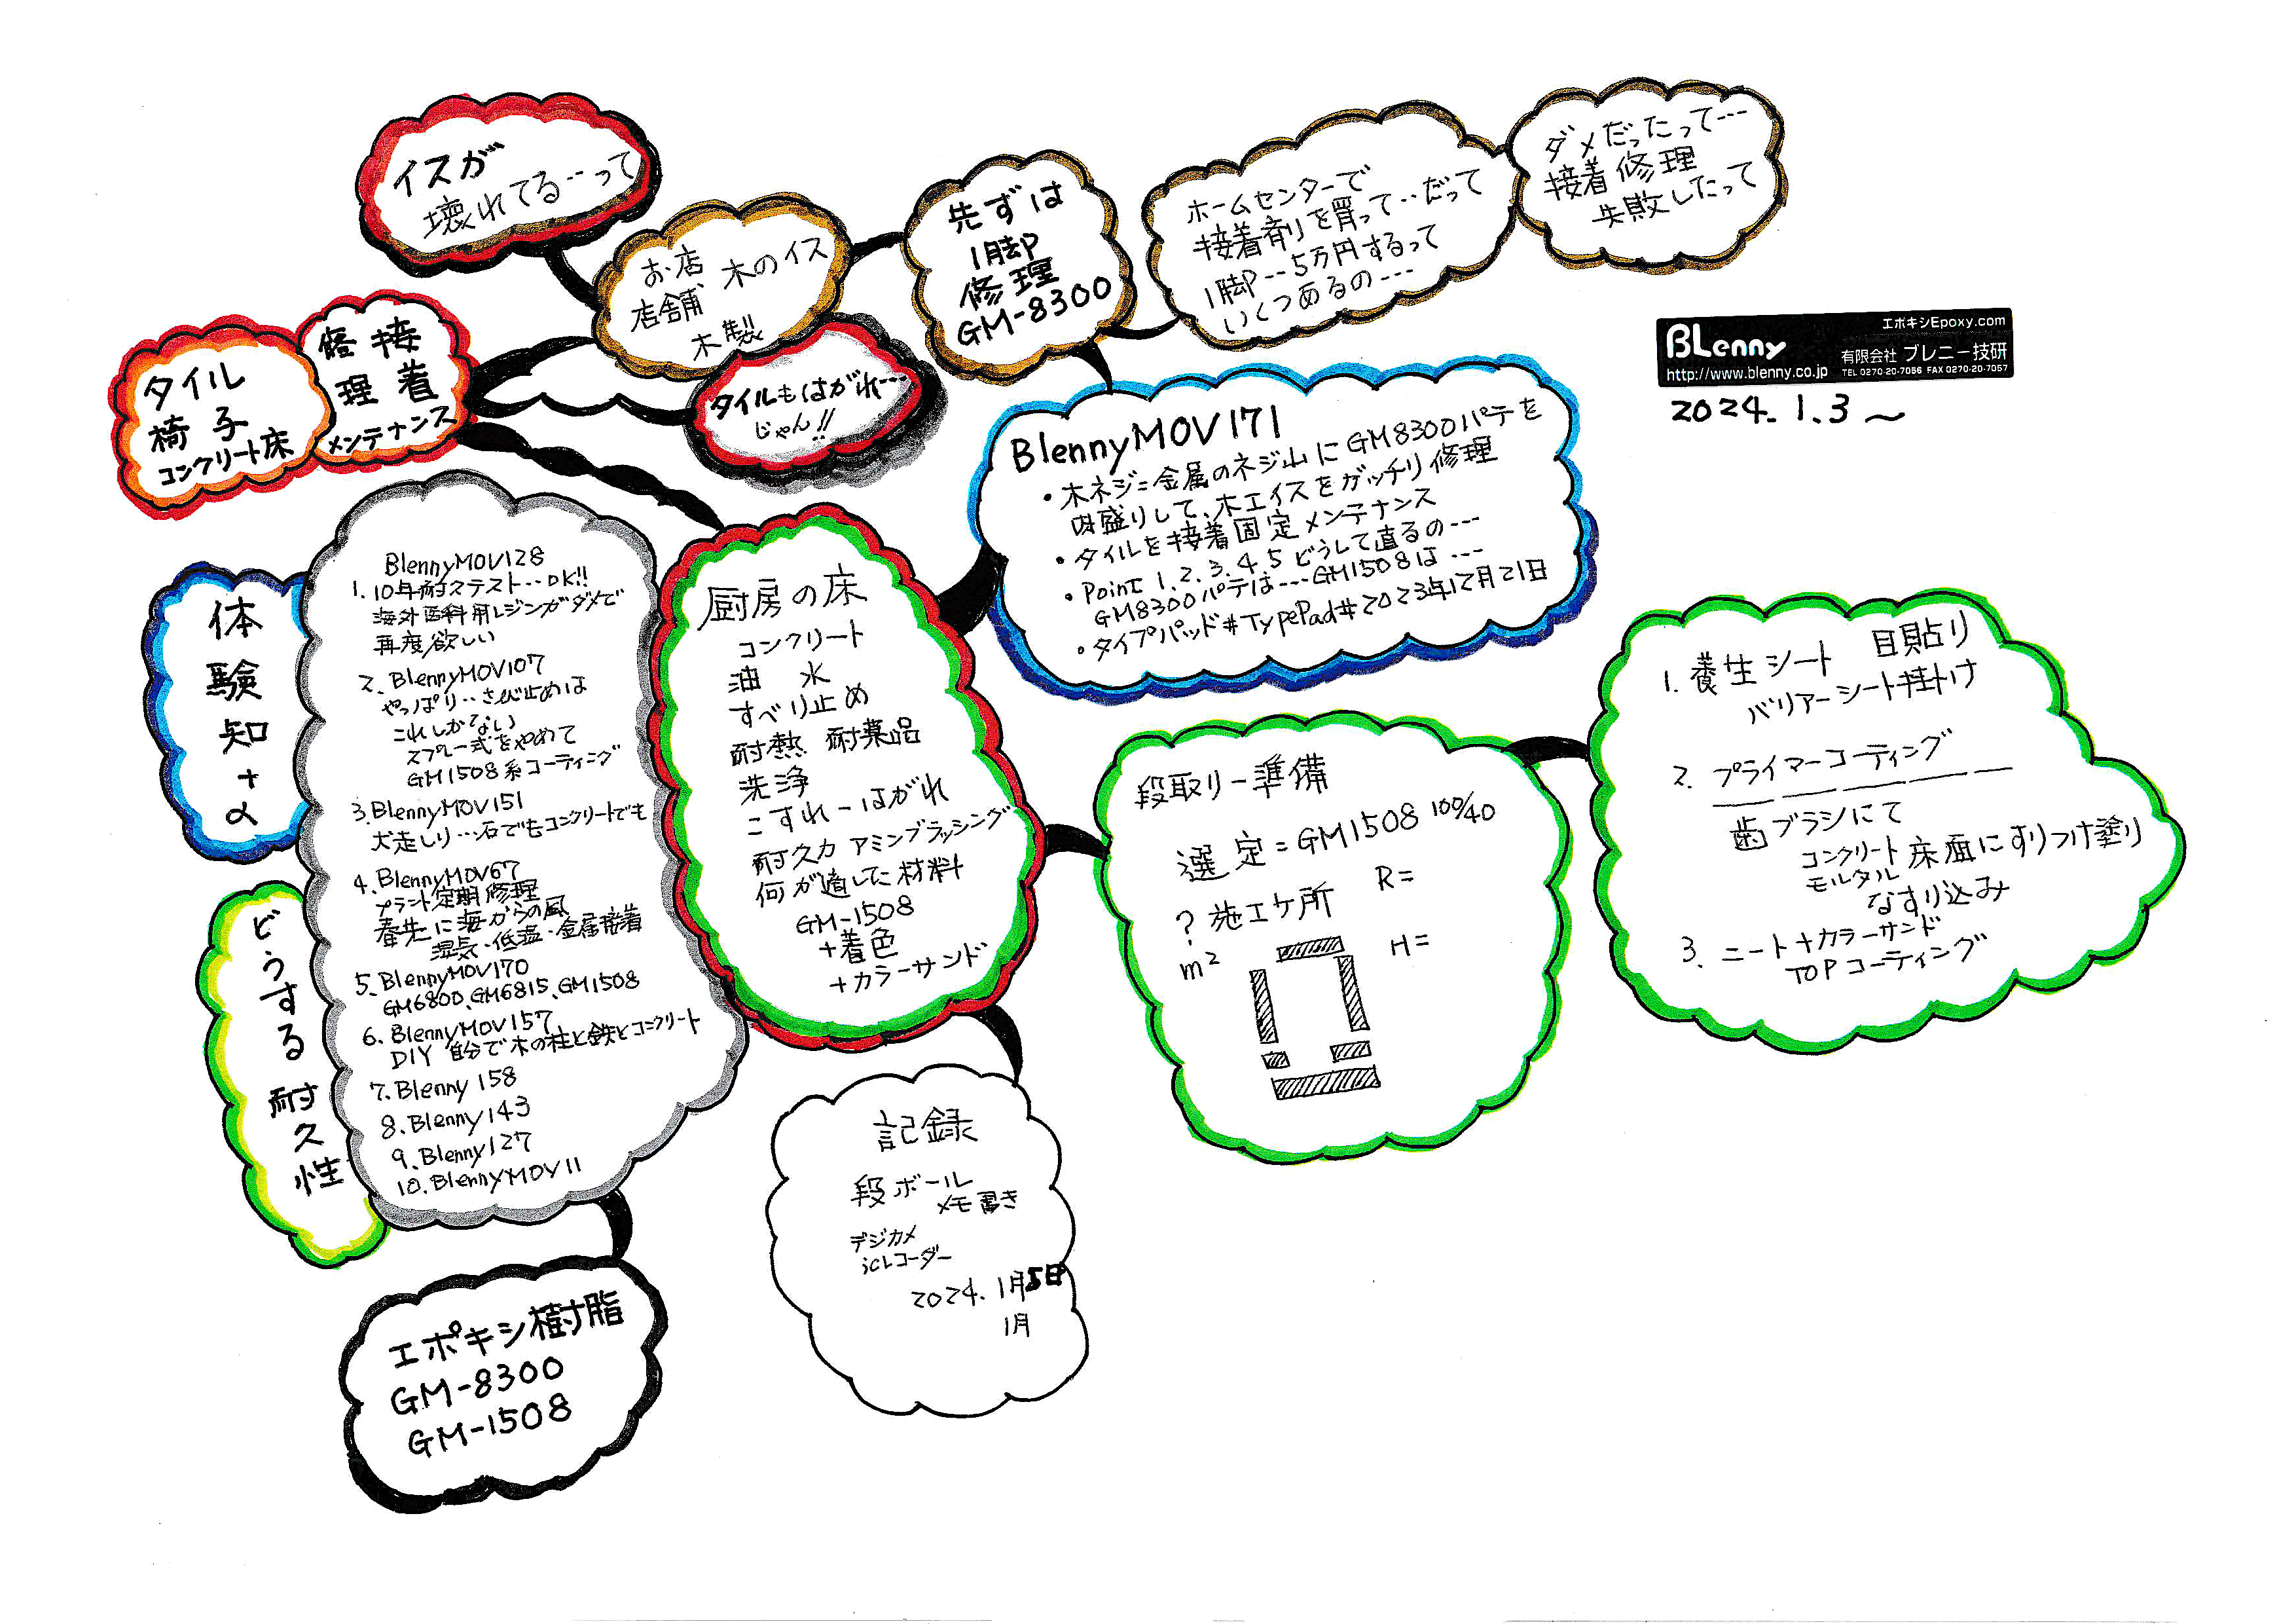 イスが
壊れてる‥って
お店 木のイス
店舗
木製
先ずは
1脚
修理
GM-8300
ホームセンターで
接着剤を買って‥だって
1脚--5万円するって
いくつあるの---
ダメだったって---
接着修理
失敗したって
BLenny
エポキシEpoxy.com
有限会社 ブレニー技研
http://www.blenny.co.jp TEL 0270-20-7056 FAX 0270-20-7057
2024.1.3～
タイル
椅子
コンクリート床
接着
修理
メンテナンス
タイルもはがれ---
じゃん!!
BlennyMOV171
・木ネジ=金属のネジ山にGM8300パテを
肉盛りして、木工イスをガッチリ修理
・タイルを接着固定メンテナンス
・Point 1.2.3.4.5 どうして直るの---
GM8300パテは---GM1508は---
・タイプパッド#TypePad#2023年12月21日
体験知+α
どうする 耐久性
BlennyMOV128
1.10年耐久テスト‥OK!!
海外歯科用レジンがダメで
再度欲しい
2.BlennyMOV107
やっぱり‥さび止めは
これしかない
スプレー式をやめて
GM1508系コーティング
3.BlennyMOV151
犬走しり…石でもコンクリートでも
4.BlennyMOV67
プラント定期修理
春先に海からの風
湿気・低温・金属接着
5.BlennyMOV170
GM6800、GM6815、GM1508
6.BlennyMOV157
DIY 自分で木の柱と鉄とコンクリート
7.Blenny 158
8.Blenny143
9.Blenny127
10.BlennyMOV11
厨房の床
コンクリート
油 水
すべり止め
耐熱 耐薬品
洗浄
こすれーはがれ
耐久力 アミンブラッシング
何が適した材料
GM-1508
+着色
+カラーサンド
段取りー準備
選定=GM1508 100/40
? 施工ケ所 R=
m² H=
1.養生シート 目貼り
バリアーシート掛け
2.プライマーコーティング
歯ブラシにて
コンクリート 床面にすりつけ塗り
モルタル
なすり込み
3.ニート+カラーサンド
TOPコーティング
記録
段ボール
メモ書き
デジカメ
icレコーダー
2024.1月5日
1月
エポキシ樹脂
GM-8300
GM-1508